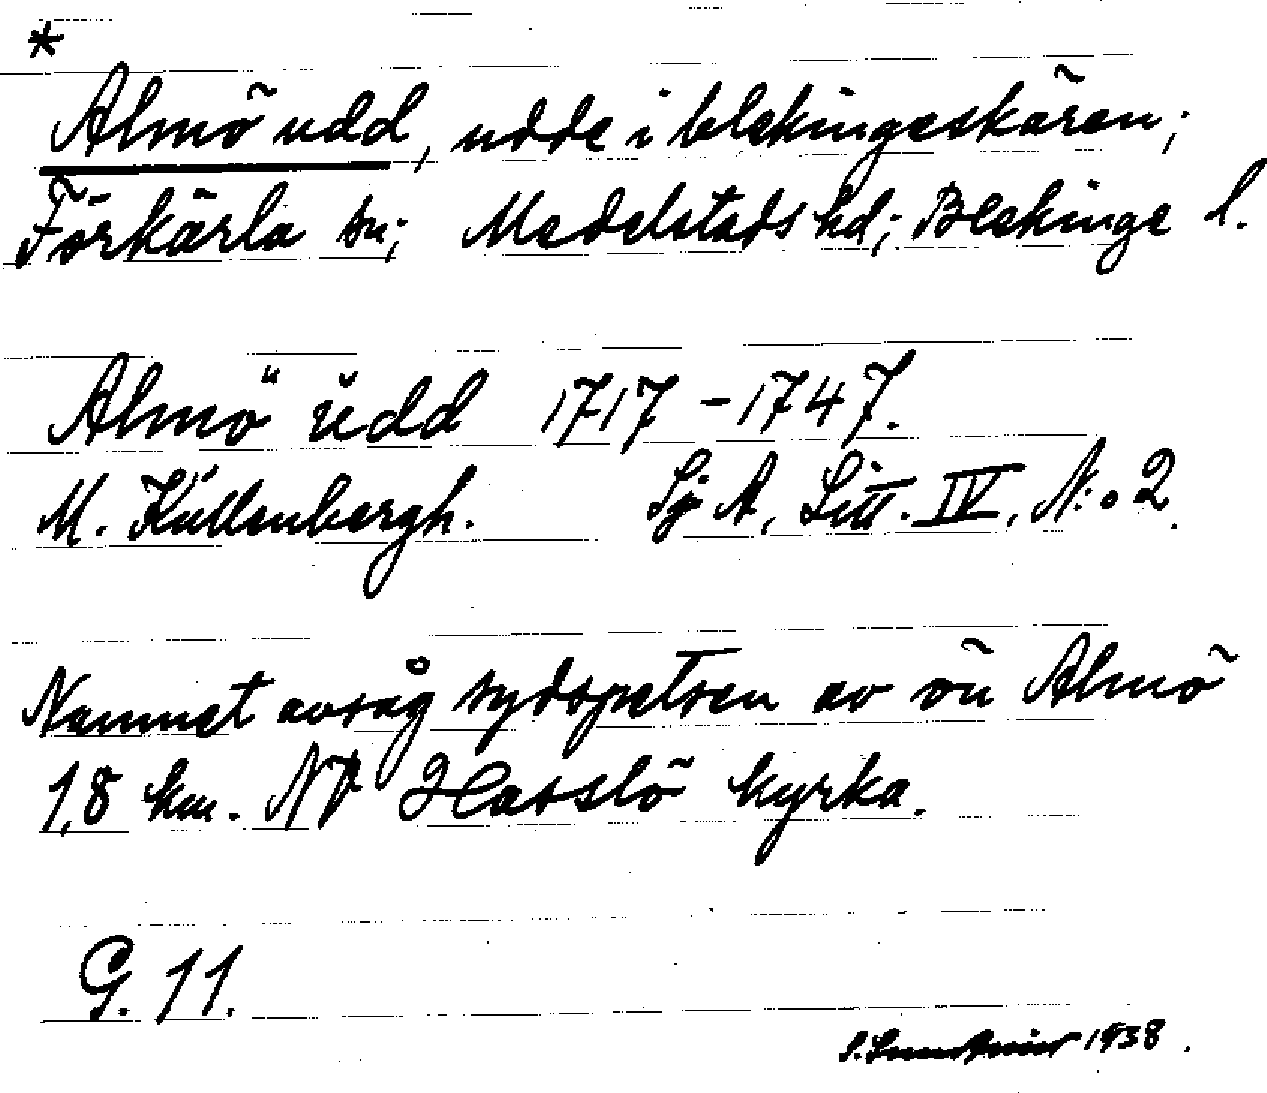 *
Almö udd, udde i blekingeskären;
Förkärla sn; Medelstads hd; Blekinge l.
Almö ŭdd 1717-1747.
M. Küllenbergh. Sjö A, Litt. IV, N:o 2.
Namnet avsåg sydspetsen av ön Almö
1,8 km. NV Hasslö kyrka.
G. 11.
1938.